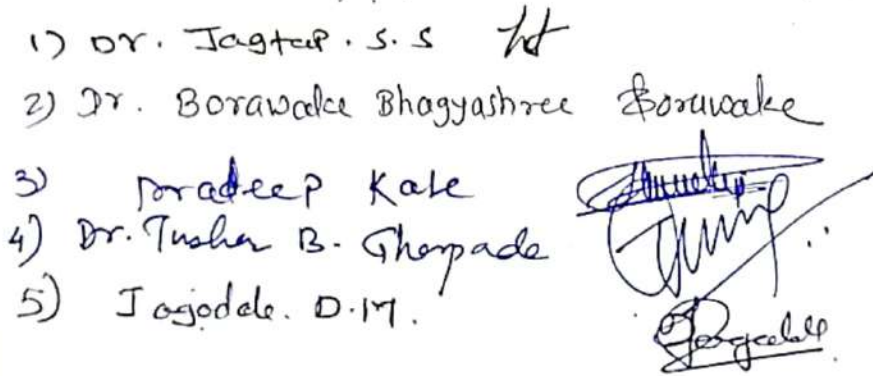 1) Dr. Jagtap. S. S
2) Dr. Borawake Bhagyashree Borawake
3) Pradeep Kale
4) Dr. Tushar B. Ghorpade
5) Jagdale. D. M.